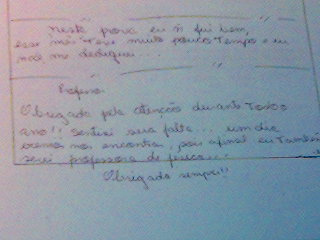 Nesta prova eu ñ fui bem,
esse mês Teve muito pouco Tempo e eu
não me dediquei...
Professora
Obrigada pela atenção durante Todo o
ano!! Sentirei sua falta... um dia
iremos nos encontrar, pois afinal eu Também
serei professora de física...
Obrigada sempre!!